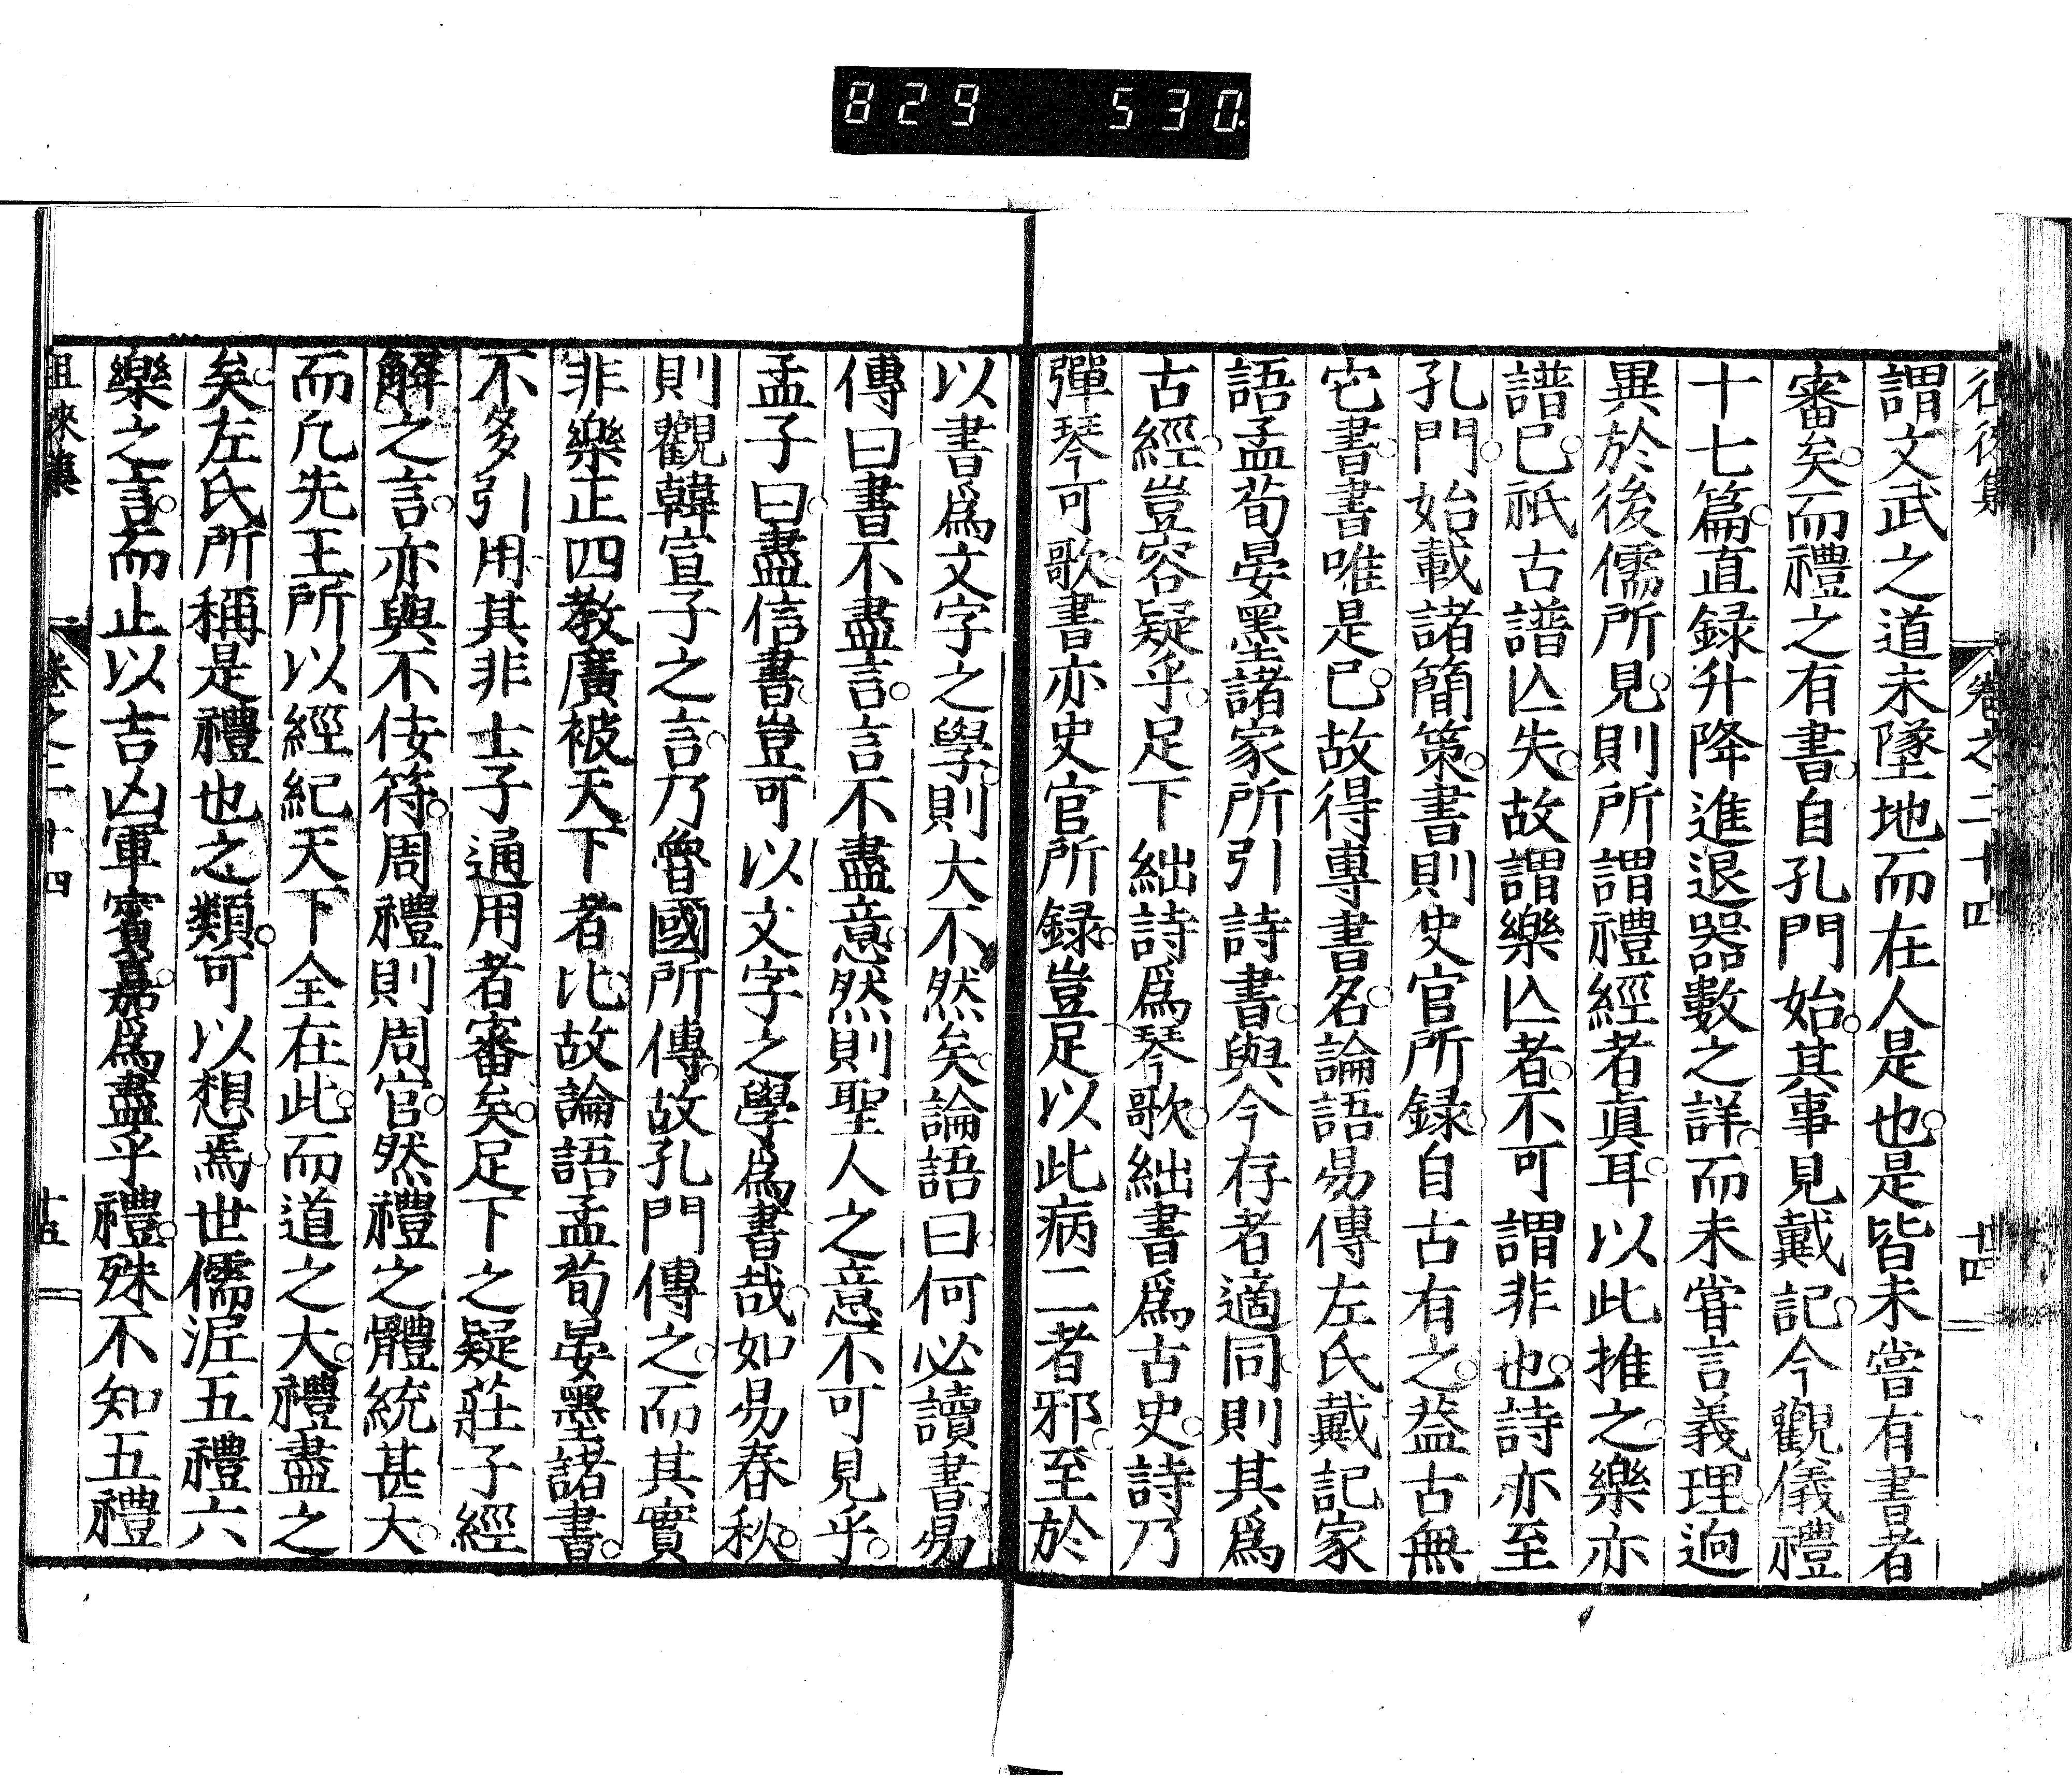 829 530.
徂徠集 卷之二十四 十四
謂文武之道未墜地而在人是也是皆未嘗有書者
審矣而禮之有書自孔門始其事見戴記今觀儀禮
十七篇直録升降進退器數之詳而未甞言義理逈
異於後儒所見則所謂禮經者眞耳以此推之樂亦
譜已祇古譜亾失故謂樂亾者不可謂非也詩亦至
孔門始載諸簡策書則史官所録自古有之益古無
它書書唯是已故得專書名論語易傳左氏戴記家
語孟荀晏墨諸家所引詩書與今存者適同則其爲
古經豈容疑乎足下絀詩爲琴歌絀書爲古史詩乃
彈琴可歌書亦史官所録豈足以此病二者邪至於
以書爲文字之學則大不然矣論語曰何必讀書易
傳曰書不盡言言不盡意然則聖人之意不可見乎
孟子曰盡信書豈可以文字之學爲書哉如易春秋
則觀韓宣子之言乃魯國所傳故孔門傳之而其實
非樂正四教廣被天下者比故論語孟荀晏墨諸書
不多引用其非士子通用者審矣足下之疑莊子經
解之言亦與不佞符周禮則周官然禮之體統甚大
而凢先王所以經紀天下全在此而道之大禮盡之
矣左氏所稱是禮也之類可以想焉世儒泥五禮六
樂之言而止以吉凶軍賓嘉爲盡乎禮殊不知五禮
徂徠集 卷之二十四 十五